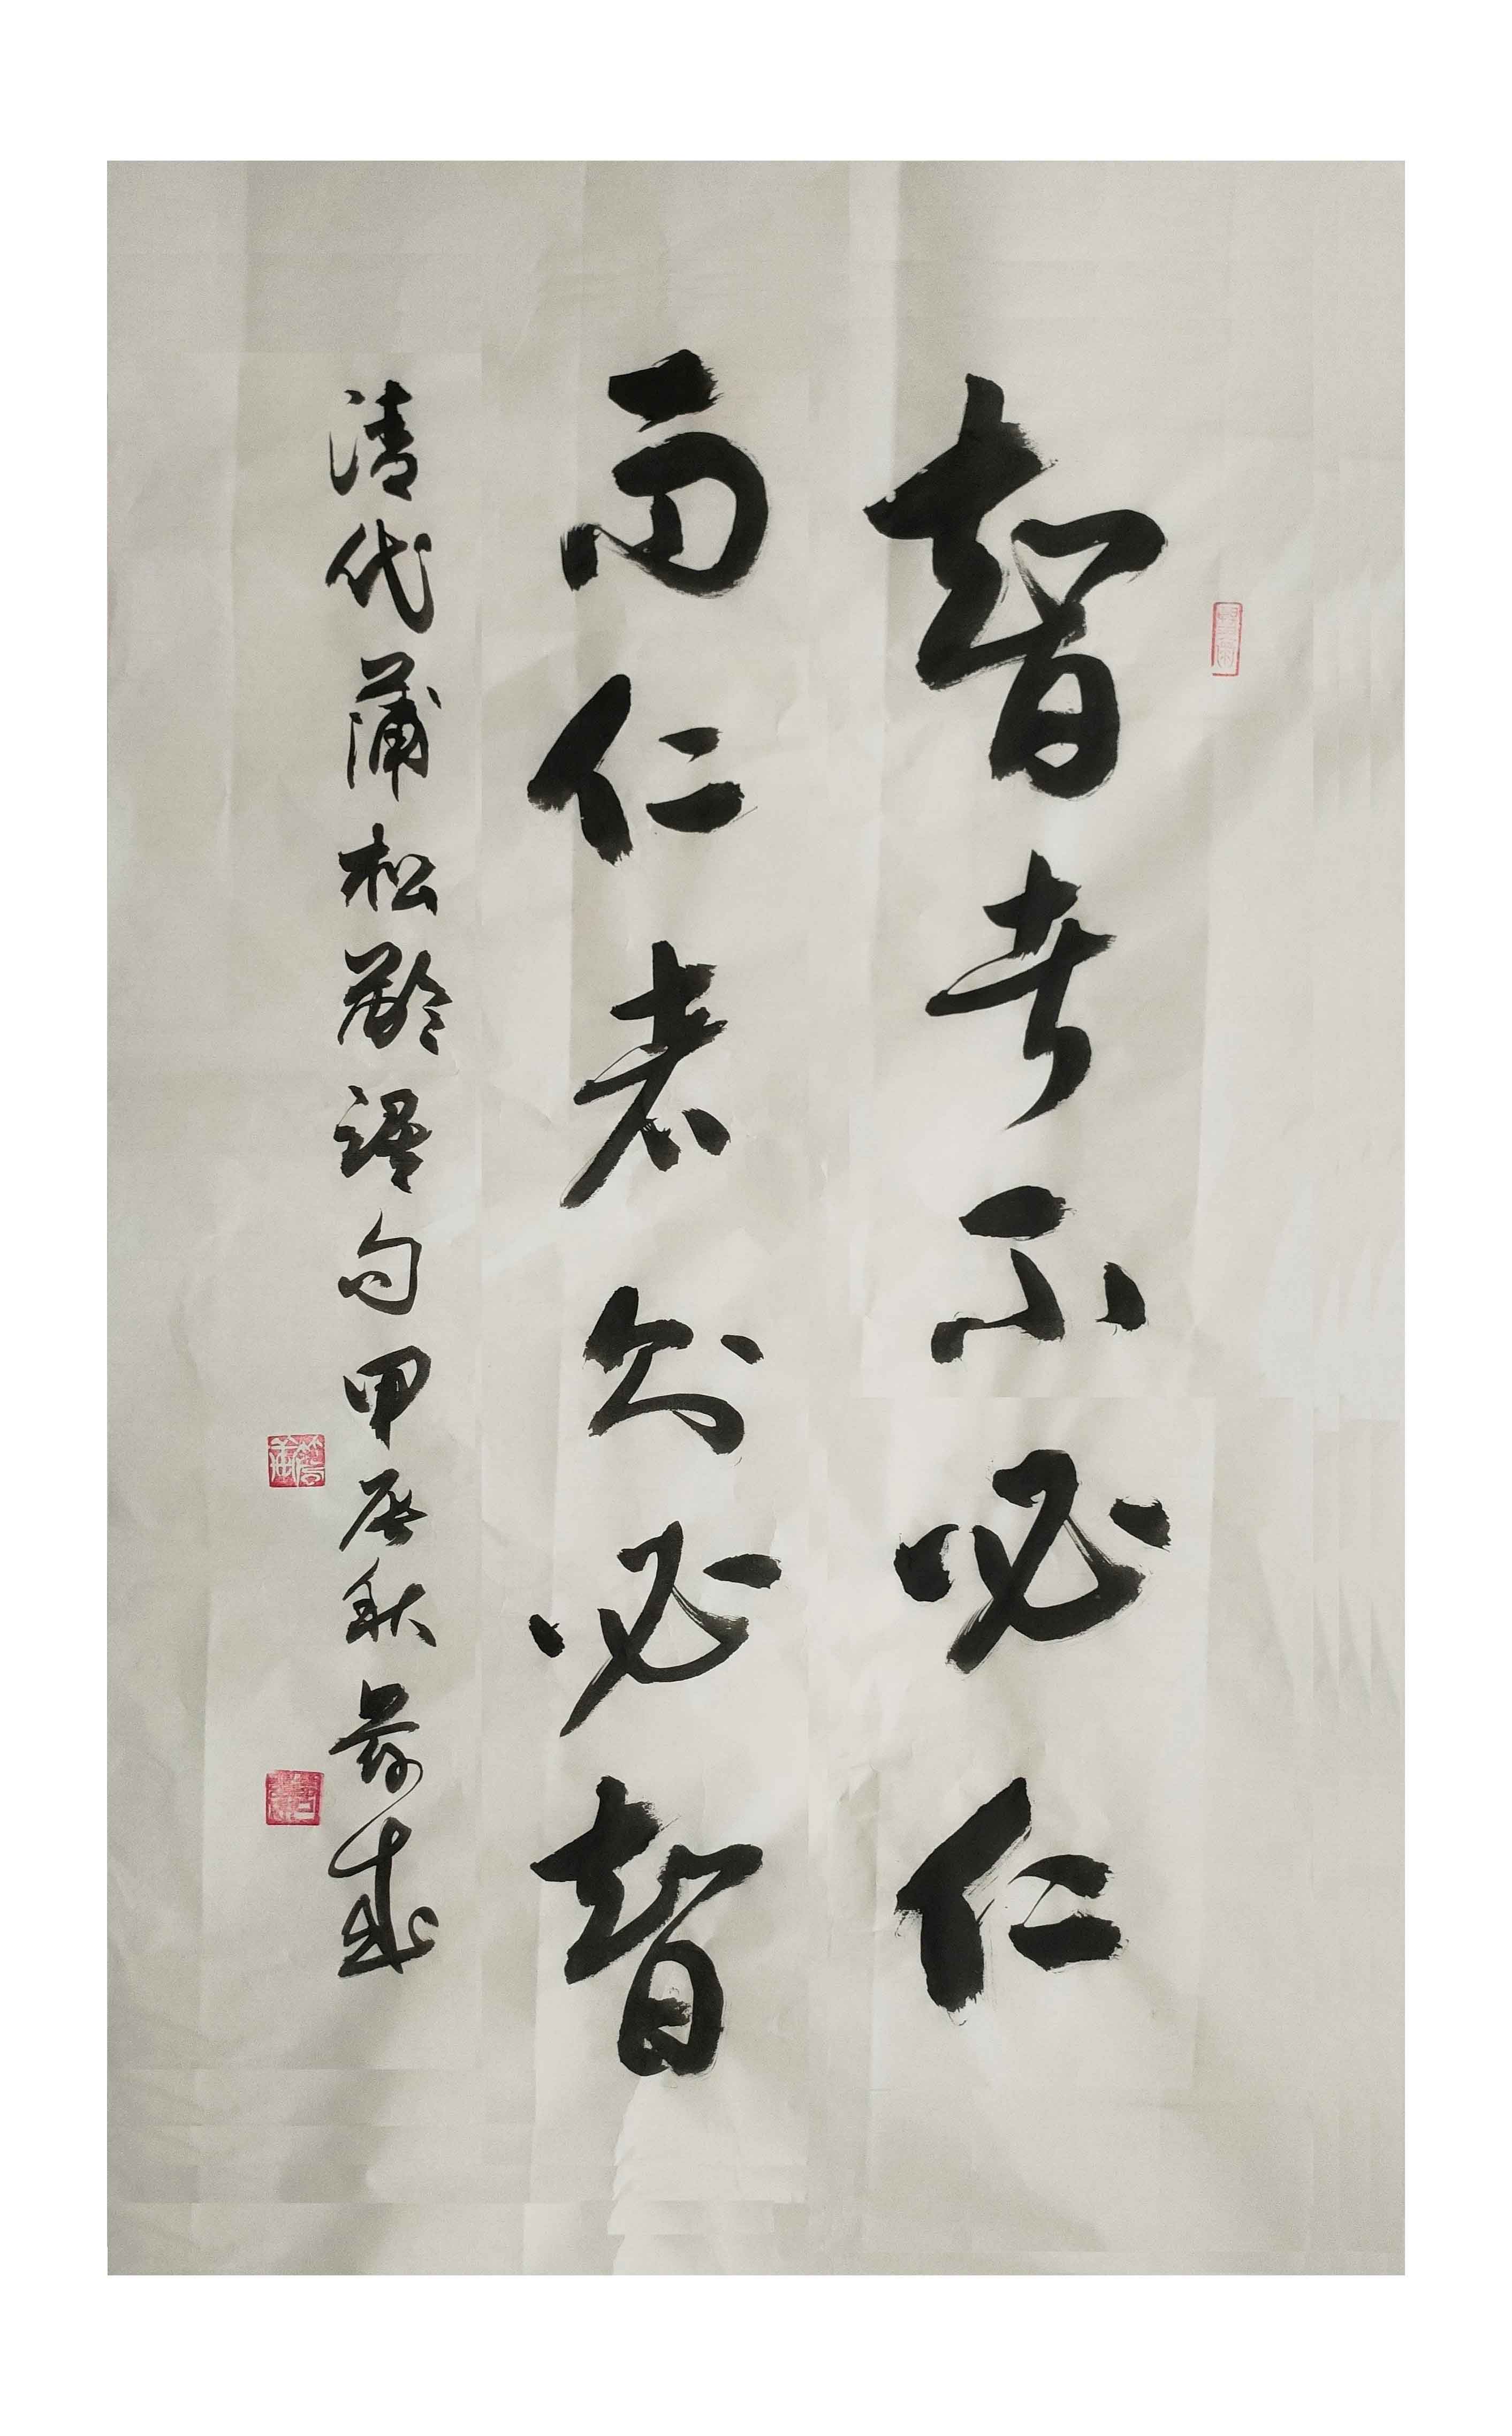 智者不必仁
而仁者則必智
清代蒲松齡語句甲辰秋